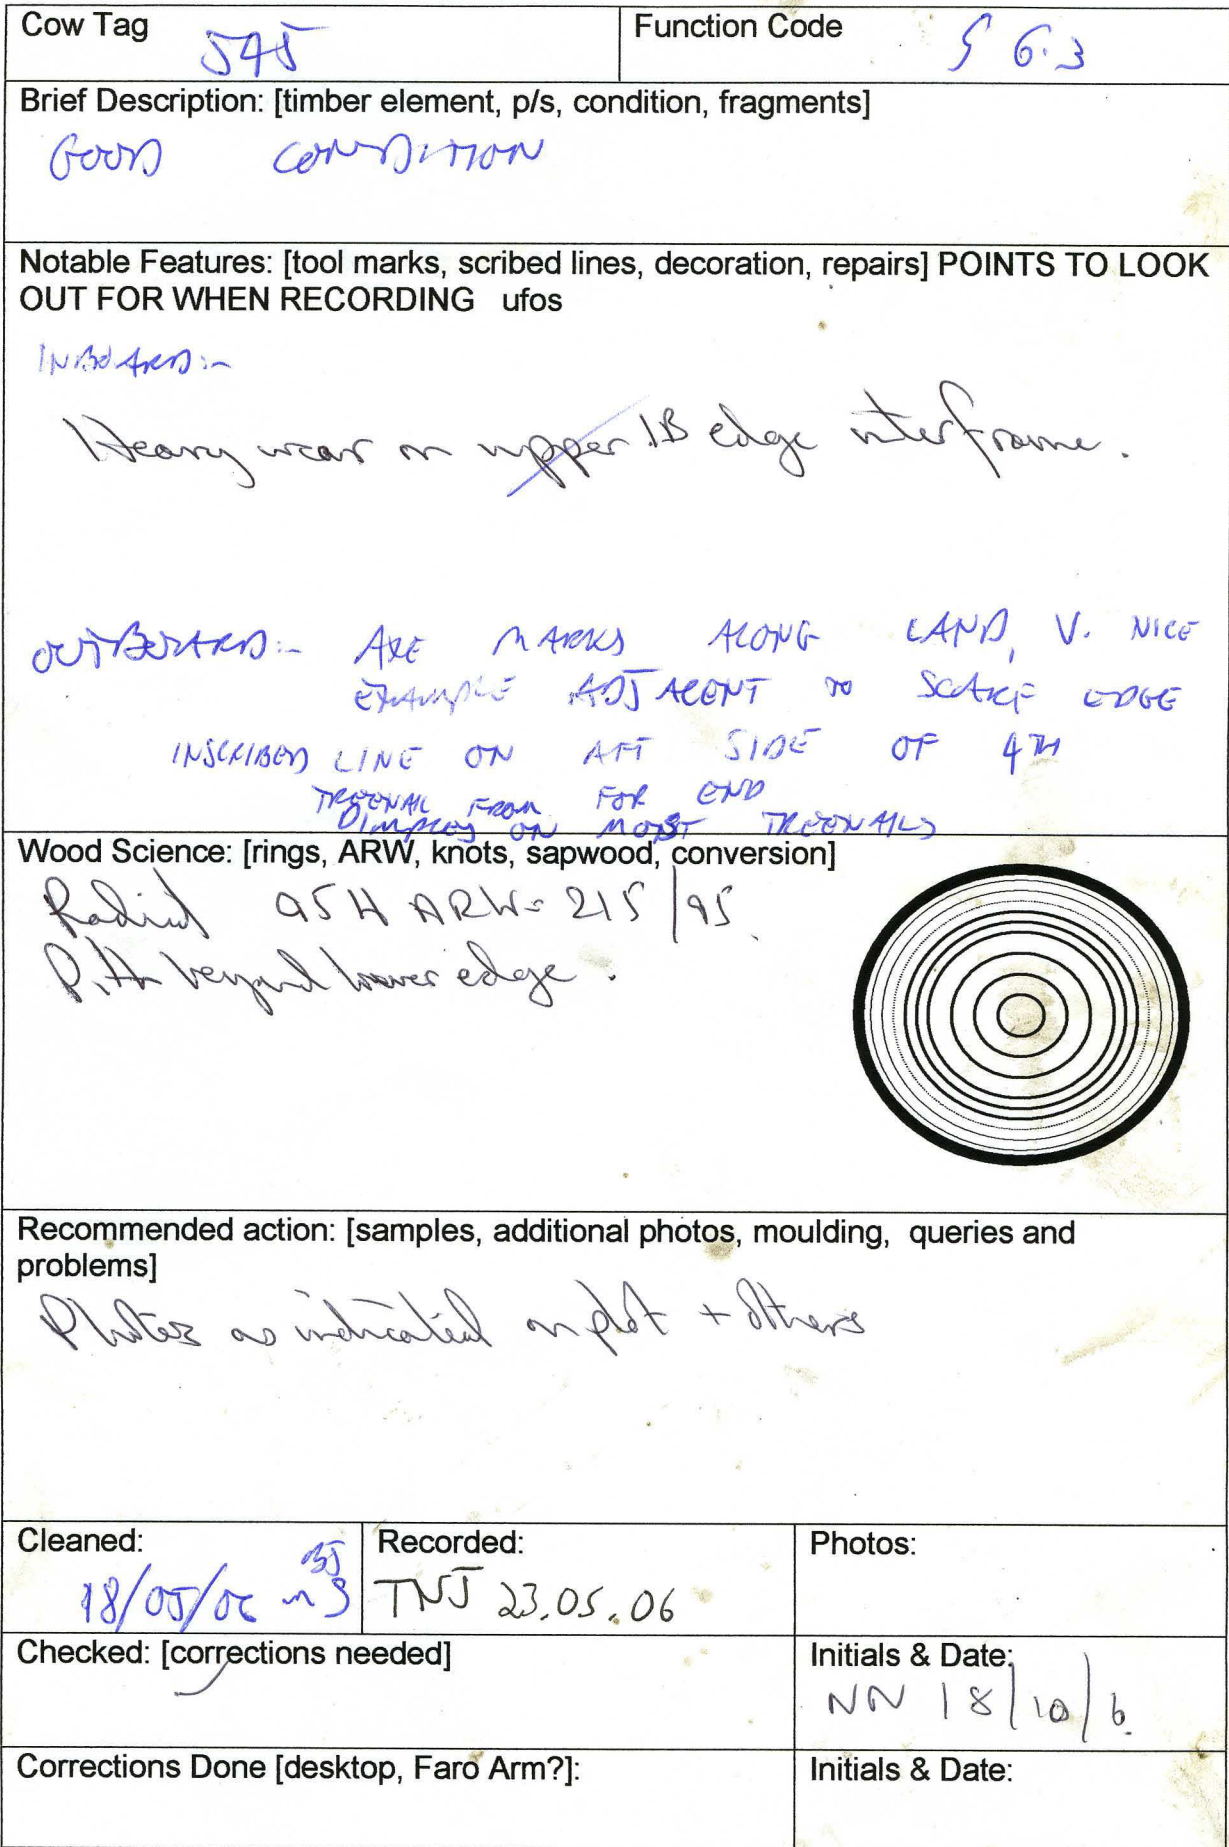 Cow Tag
545
Function Code
S 6.3
Brief Description: [timber element, p/s, condition, fragments]
GOOD CONDITION
Notable Features: [tool marks, scribed lines, decoration, repairs] POINTS TO LOOK
OUT FOR WHEN RECORDING ufos
INBOARD:-
Heavy wear on upper IB edge interframe.
OUTBOARD:- AXE MARKS ALONG LAND, V. NICE
EXAMPLE ADJACENT TO SCARF EDGE
INSCRIBED LINE ON AFT SIDE OF 4TH
TREENAIL FROM FOR END
DIMPLES ON MOST TREENAILS
Wood Science: [rings, ARW, knots, sapwood, conversion]
Radial 95H ARW= 215/95.
Pith beyond lower edge.
Recommended action: [samples, additional photos, moulding, queries and
problems]
Photos as indicated on plot + others
Cleaned:
18/05/06
Recorded:
TNJ 23.05.06
Photos:
Checked: [corrections needed]
Initials & Date:
NN 18/10/6.
Corrections Done [desktop, Faro Arm?]:
Initials & Date: